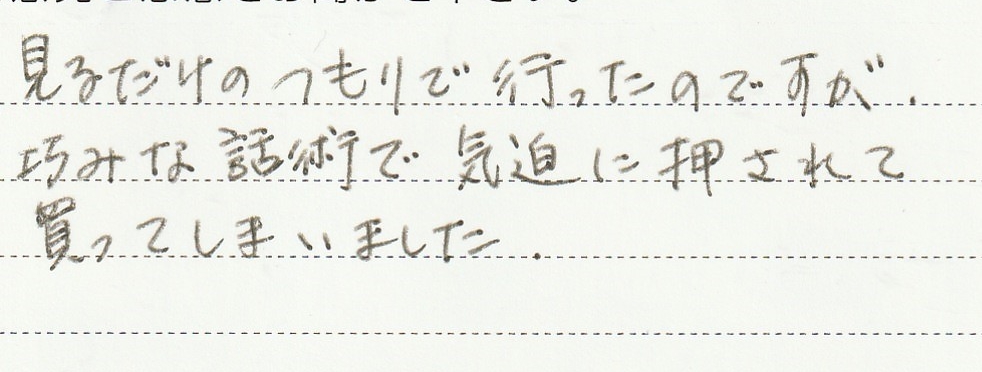 見るだけのつもりで行ったのですが.
巧みな話術で気迫に押されて
買ってしまいました.